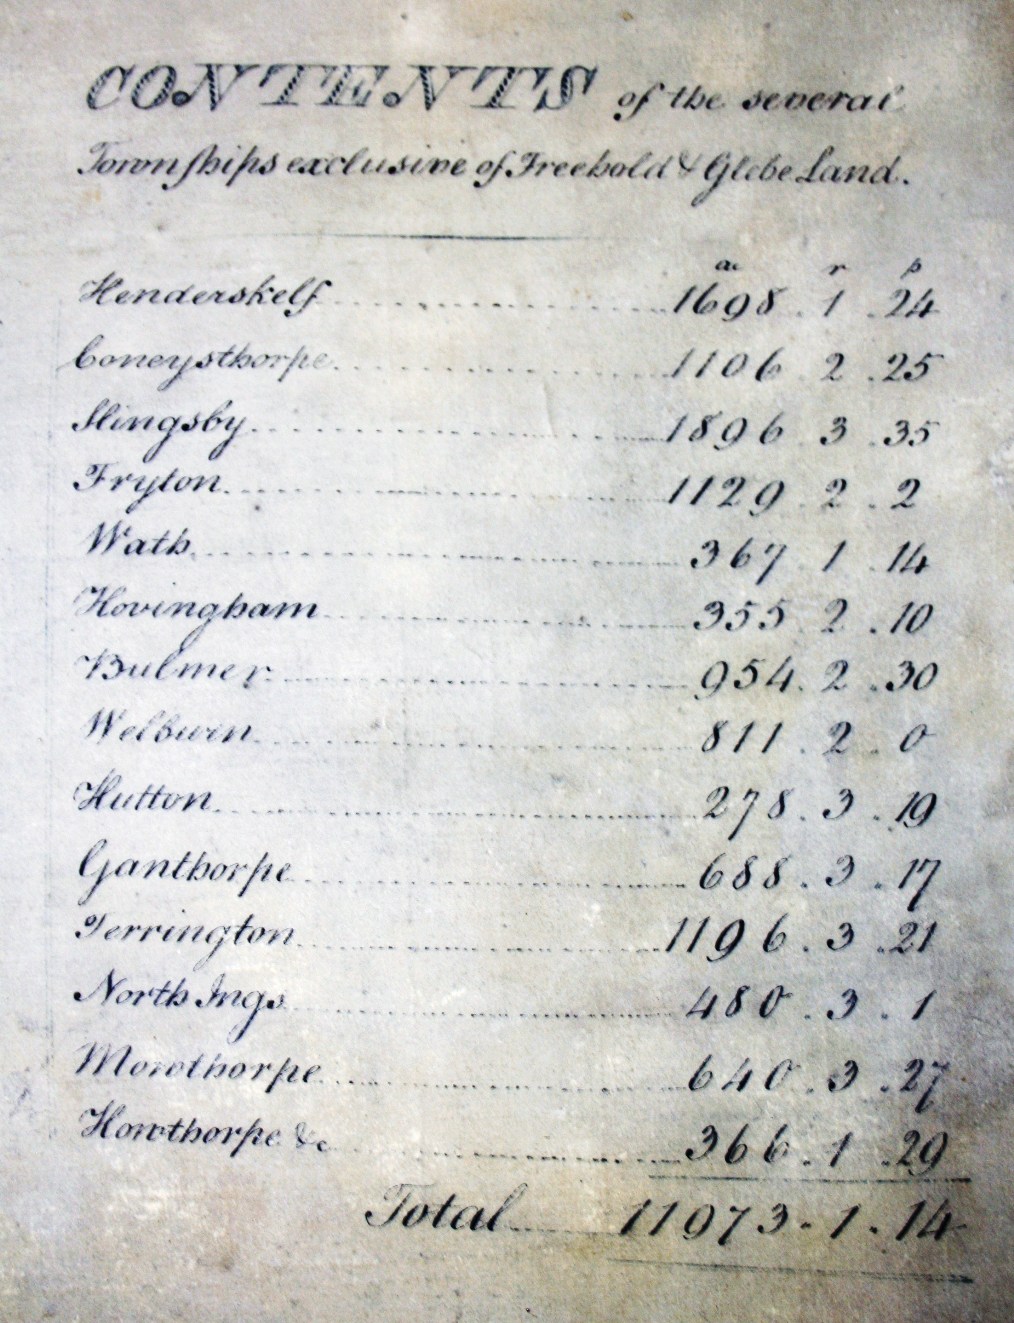 CONTENTS of the several
Townships exclusive of Freehold & Glebe Land.
a. r p
Henderskelf 1698 . 1 . 24
Coneysthorpe 1106 . 2 . 25
Slingsby 1896 . 3 . 35
Fryton 1129 . 2 . 2
Wath 367 . 1 . 14
Hovingham 355 . 2 . 10
Bulmer 954 . 2 . 30
Welburn 811 . 2 . 0
Hutton 278 . 3 . 19
Ganthorpe 688 . 3 . 17
Terrington 1196 . 3 . 21
North Ings 480 . 3 . 1
Mowthorpe 640 . 3 . 27
Howthorpe &c 366 . 1 . 29
Total 11973 . 1 . 14